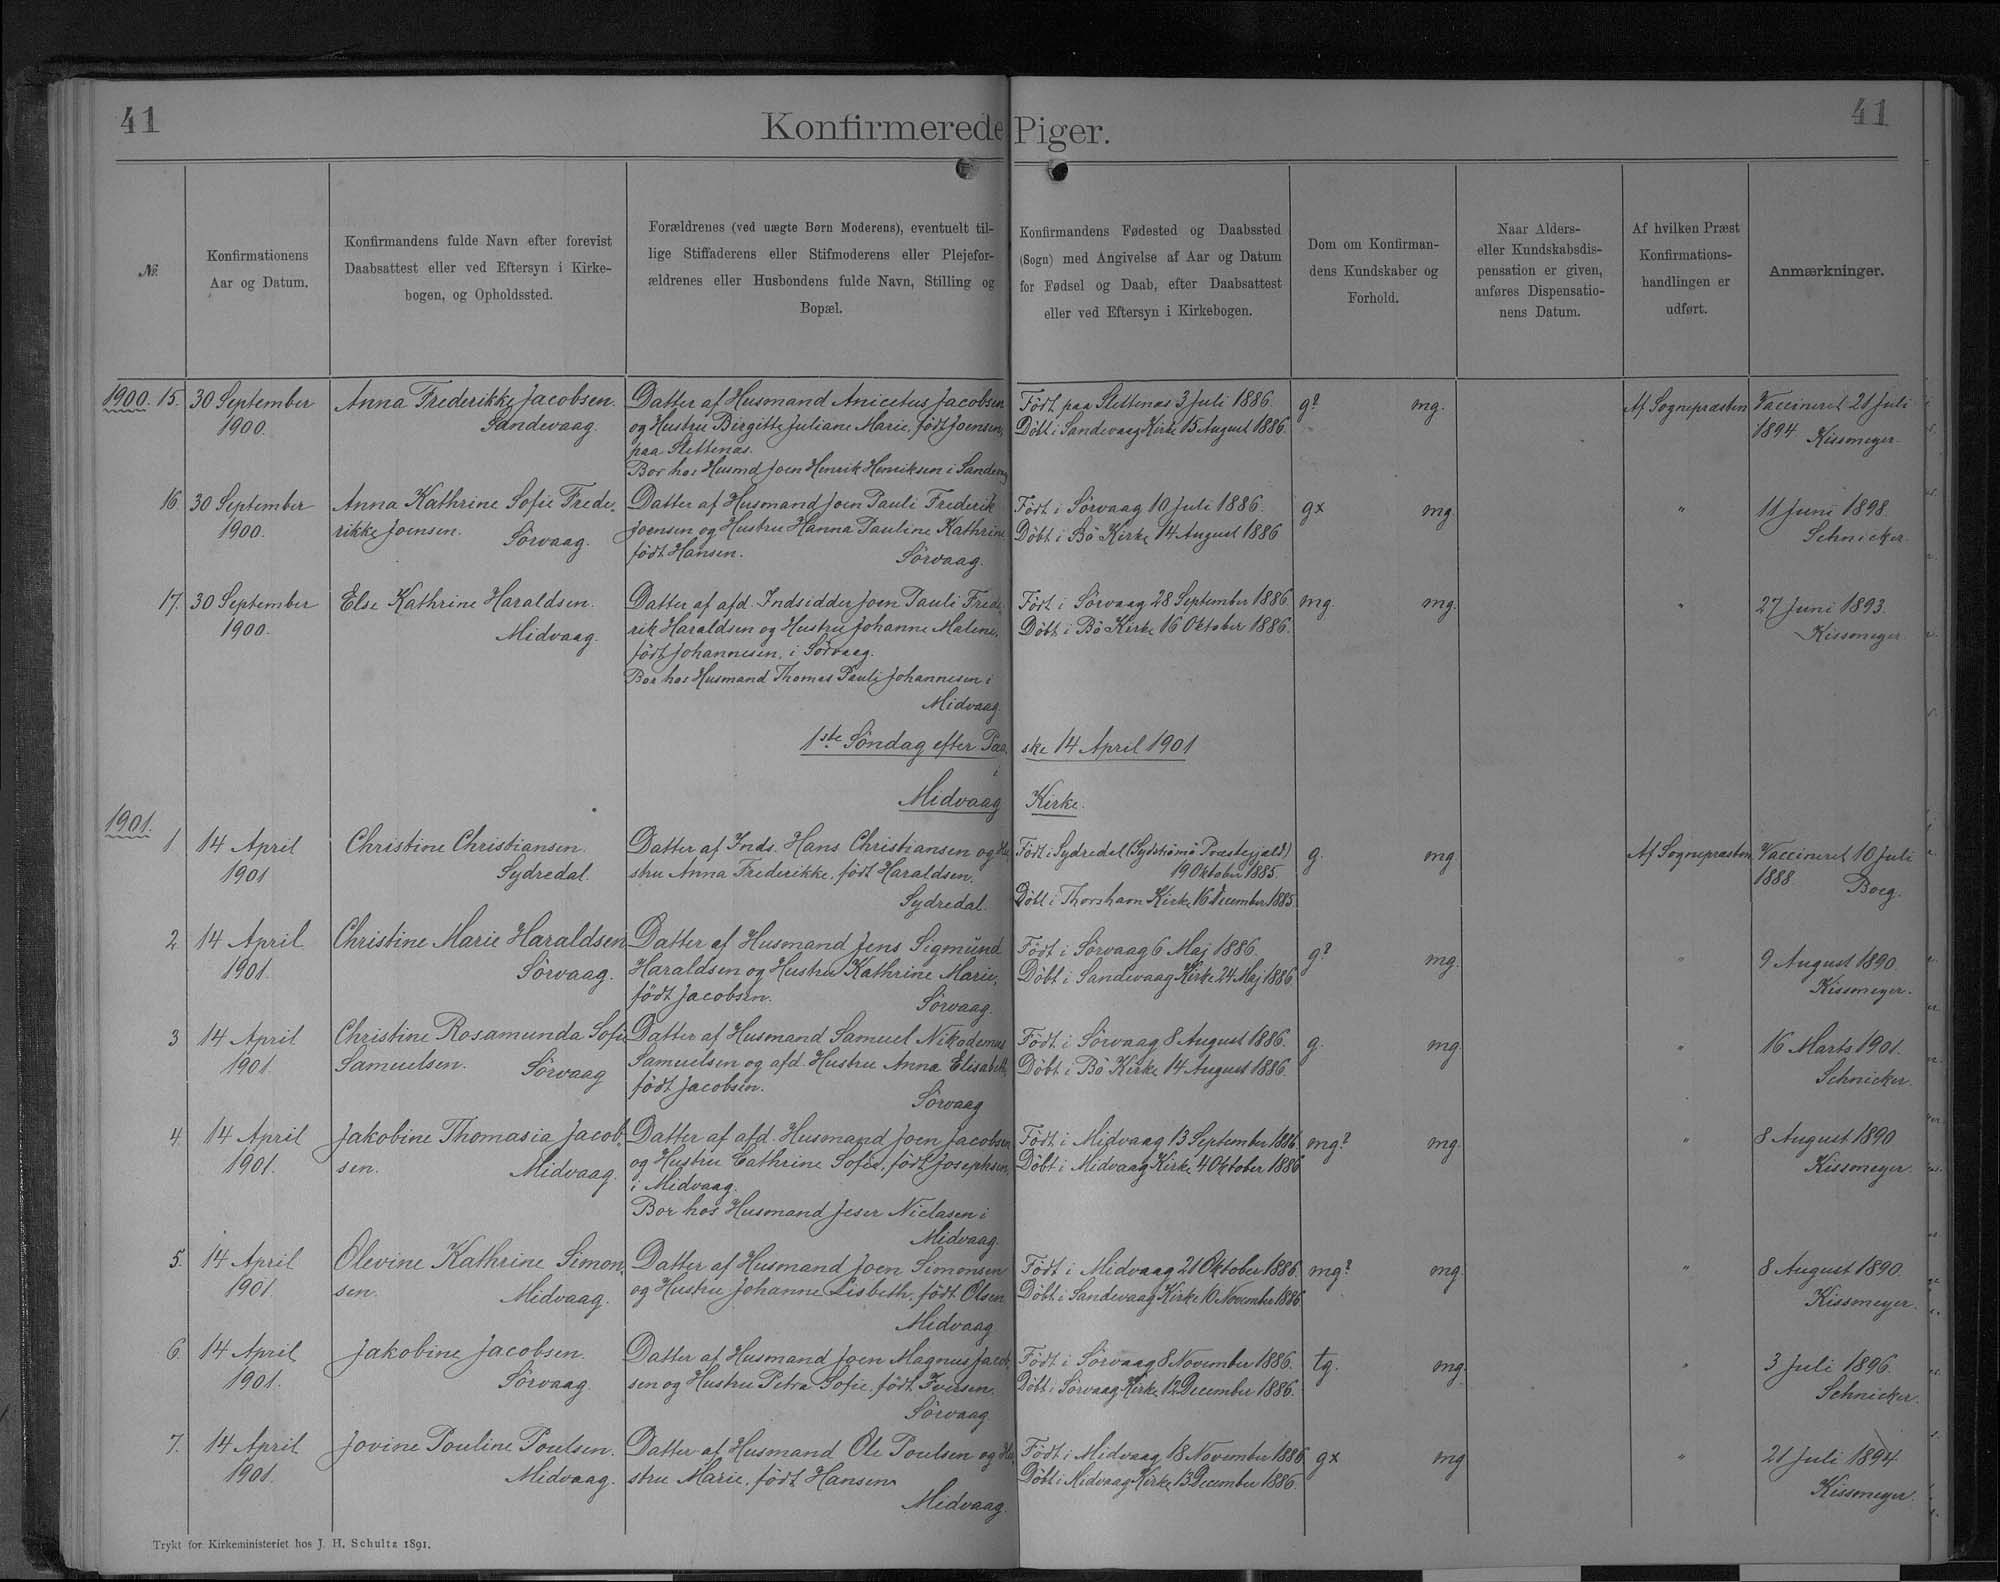 41
Konfirmerede Piger.
41
№.
Konfirmationens
Aar og Datum.
Konfirmandens fulde Navn efter forevist
Daabsattest eller ved Eftersyn i Kirke-
bogen, og Opholdssted.
Forældrenes (ved uægte Børn Moderens), eventuelt til-
lige Stiffaderens eller Stifmoderens eller Plejefor-
ældrenes eller Husbondens fulde Navn, Stilling og
Bopæl.
Konfirmandens Fødested og Daabssted
(Sogn) med Angivelse af Aar og Datum
for Fødsel og Daab, efter Daabsattest
eller ved Eftersyn i Kirkebogen.
Dom om Konfirman-
dens Kundskaber og
Forhold.
Naar Alders-
eller Kundskabsdis-
pensation er given,
anføres Dispensatio-
nens Datum.
Af hvilken Præst
Konfirmations-
handlingen er
udført.
Anmærkninger.
1900. 15.
30 September
1900.
Anna Frederikke Jacobsen.
Sandevaag.
Datter af Husmand Anicetus Jacobsen
og Hustru Birgitte Juliane Marie, født Joensen,
paa Slettenas.
Bor hos Husmd Joen Henrik Henriksen i Sandevag
Født paa Slettenas 3 Juli 1886.
Döbt i Sandevaag Kirke 15 August 1886.
g?
mg.
Af Sognepræsten
Vaccineret 21 Juli
1894 Kissmeyer.
16.
30 September
1900.
Anna Kathrine Sofie Frede-
rikke Joensen.
Sörvaag.
Datter af Husmand Joen Pauli Frederik
Joensen og Hustru Hanna Pauline Kathrine
født Hansen.
Sörvaag.
Født i Sörvaag 10 Juli 1886.
Döbt i Bö Kirke 14 August 1886
gx
mg.
"
11 Juni 1898.
Schnicker.
17.
30 September
1900.
Else Kathrine Haraldsen.
Midvaag.
Datter af afd. Indsidder Joen Pauli Frede-
rik Haraldsen og Hustru Johanne Malene,
født Johannesen, i Sörvaag.
Bor hos Husmand Thomas Pauli Johannesen i
Midvaag.
Født i Sörvaag 28 September 1886.
Döbt i Bö Kirke 16 Oktober 1886.
mg.
mg.
"
27 Juni 1893.
Kissmeyer.
1ste Söndag efter Paa-
ske 14 April 1901
i
Midvaag Kirke.
1901.
1
14 April
1901
Christine Christiansen.
Sydredal.
Datter af Inds. Hans Christiansen og Hu-
stru Anna Frederikke, født Haraldsen.
Sydredal.
Født i Sydredal (Sydströmö Præstegjæld)
19 Oktober 1885.
Döbt i Thorshavn Kirke 16 December 1885.
g.
mg.
Af Sognepræsten
Vaccineret 10 Juli
1888. Boeg.
2
14 April
1901.
Christine Marie Haraldsen
Sörvaag.
Datter af Husmand Jens Sigmund
Haraldsen og Hustru Kathrine Marie,
født Jacobsen.
Sörvaag.
Født i Sörvaag 6 Maj 1886.
Döbt i Sandevaag Kirke 24 Maj 1886.
g?
mg.
"
9 August 1890.
Kissmeyer.
3
14 April
1901.
Christine Rosamunda Sofie
Samuelsen.
Sörvaag
Datter af Husmand Samuel Nikodemus
Samuelsen og afd. Hustru Anna Elisabeth,
født Jacobsen.
Sörvaag
Født i Sörvaag 8 August 1886.
Döbt i Bö Kirke 14 August 1886.
g.
mg.
"
16 Marts 1901.
Schnicker.
4.
14 April
1901.
Jakobine Thomasia Jacob-
sen.
Midvaag.
Datter af afd. Husmand Joen Jacobsen
og Hustru Cathrine Sofie, født Josephsen,
i Midvaag.
Bor hos Husmand Jeser Niclasen i
Midvaag.
Født i Midvaag 13 September 1886.
Döbt i Midvaag Kirke 4 Oktober 1886
mg?
mg.
"
8 August 1890
Kissmeyer.
5.
14 April
1901.
Olevine Kathrine Simon-
sen.
Midvaag.
Datter af Husmand Joen Simonsen
og Hustru Johanne Lisbeth, født Olsen
Midvaag
Født i Midvaag 21 Oktober 1886.
Döbt i Sandevaag Kirke 10 November 1886
mg?
mg.
"
8 August 1890.
Kissmeyer.
6.
14 April
1901.
Jakobine Jacobsen.
Sörvaag.
Datter af Husmand Joen Magnus Jacob-
sen og Hustru Petra Sofie, født Iversen.
Sörvaag.
Født i Sörvaag 8 November 1886.
Döbt i Sörvaag Kirke 12 December 1886.
tg.
mg.
"
3 Juli 1896.
Schnicker.
7.
14 April
1901.
Jovine Pouline Poulsen.
Midvaag.
Datter af Husmand Ole Poulsen og Hu-
stru Marie, født Hansen
Midvaag.
Født i Midvaag 18 November 1886
Döbt i Midvaag Kirke 13 December 1886.
gx
mg
"
21 Juli 1894.
Kissmeyer.
Trykt for Kirkeministeriet hos J. H. Schultz 1891.